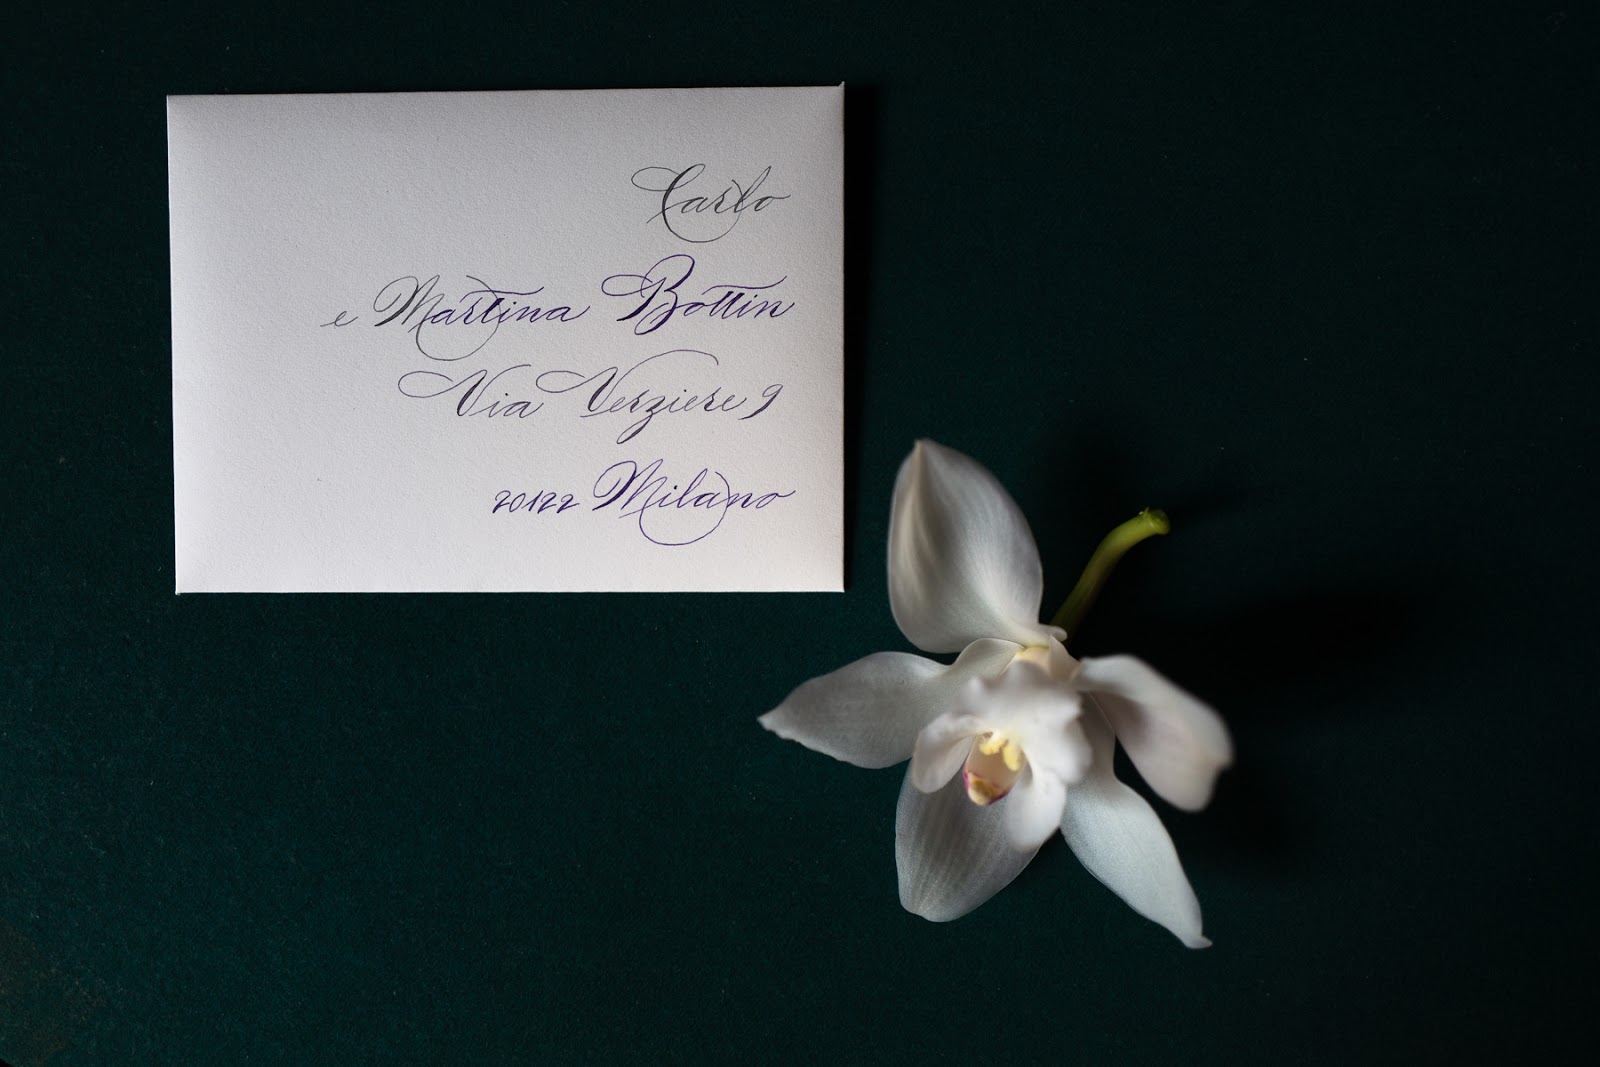 Carlo
e Martina Bottin
Via Verziere 9
20122 Milano